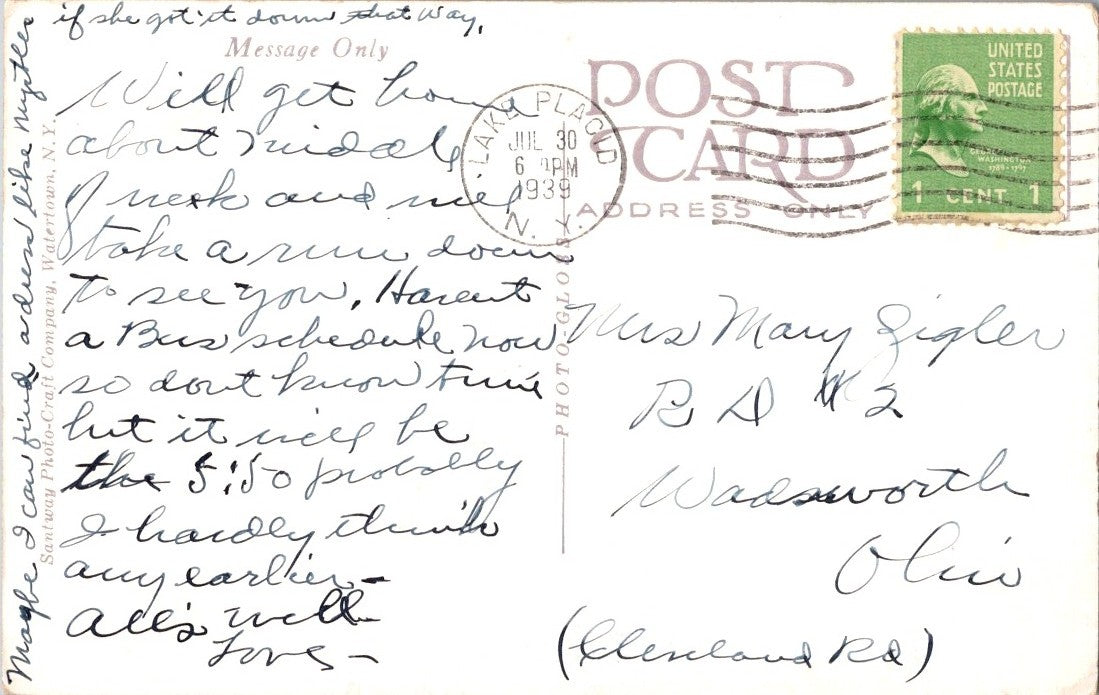 if she got it down that way.
Message Only
Will get home
about middle
of week and will
take a run down
to see you. Havent
a Bus schedule now
so dont know time
but it will be
the 5:50 probably
I hardly think
any earlier –
All's well
Love –
Maybe I can find a dress like
Santway Photo-Craft Company, Watertown, N. Y.
PHOTO-GLOSS
POST
CARD
ADDRESS ONLY
LAKE PLACID
JUL 30
6 PM
1939
N. Y.
UNITED
STATES
POSTAGE
WASHINGTON
1789-1797
1 CENT 1
Mrs Mary Zigler
R D # 2
Wadsworth
Ohio
(Cleveland Rd)